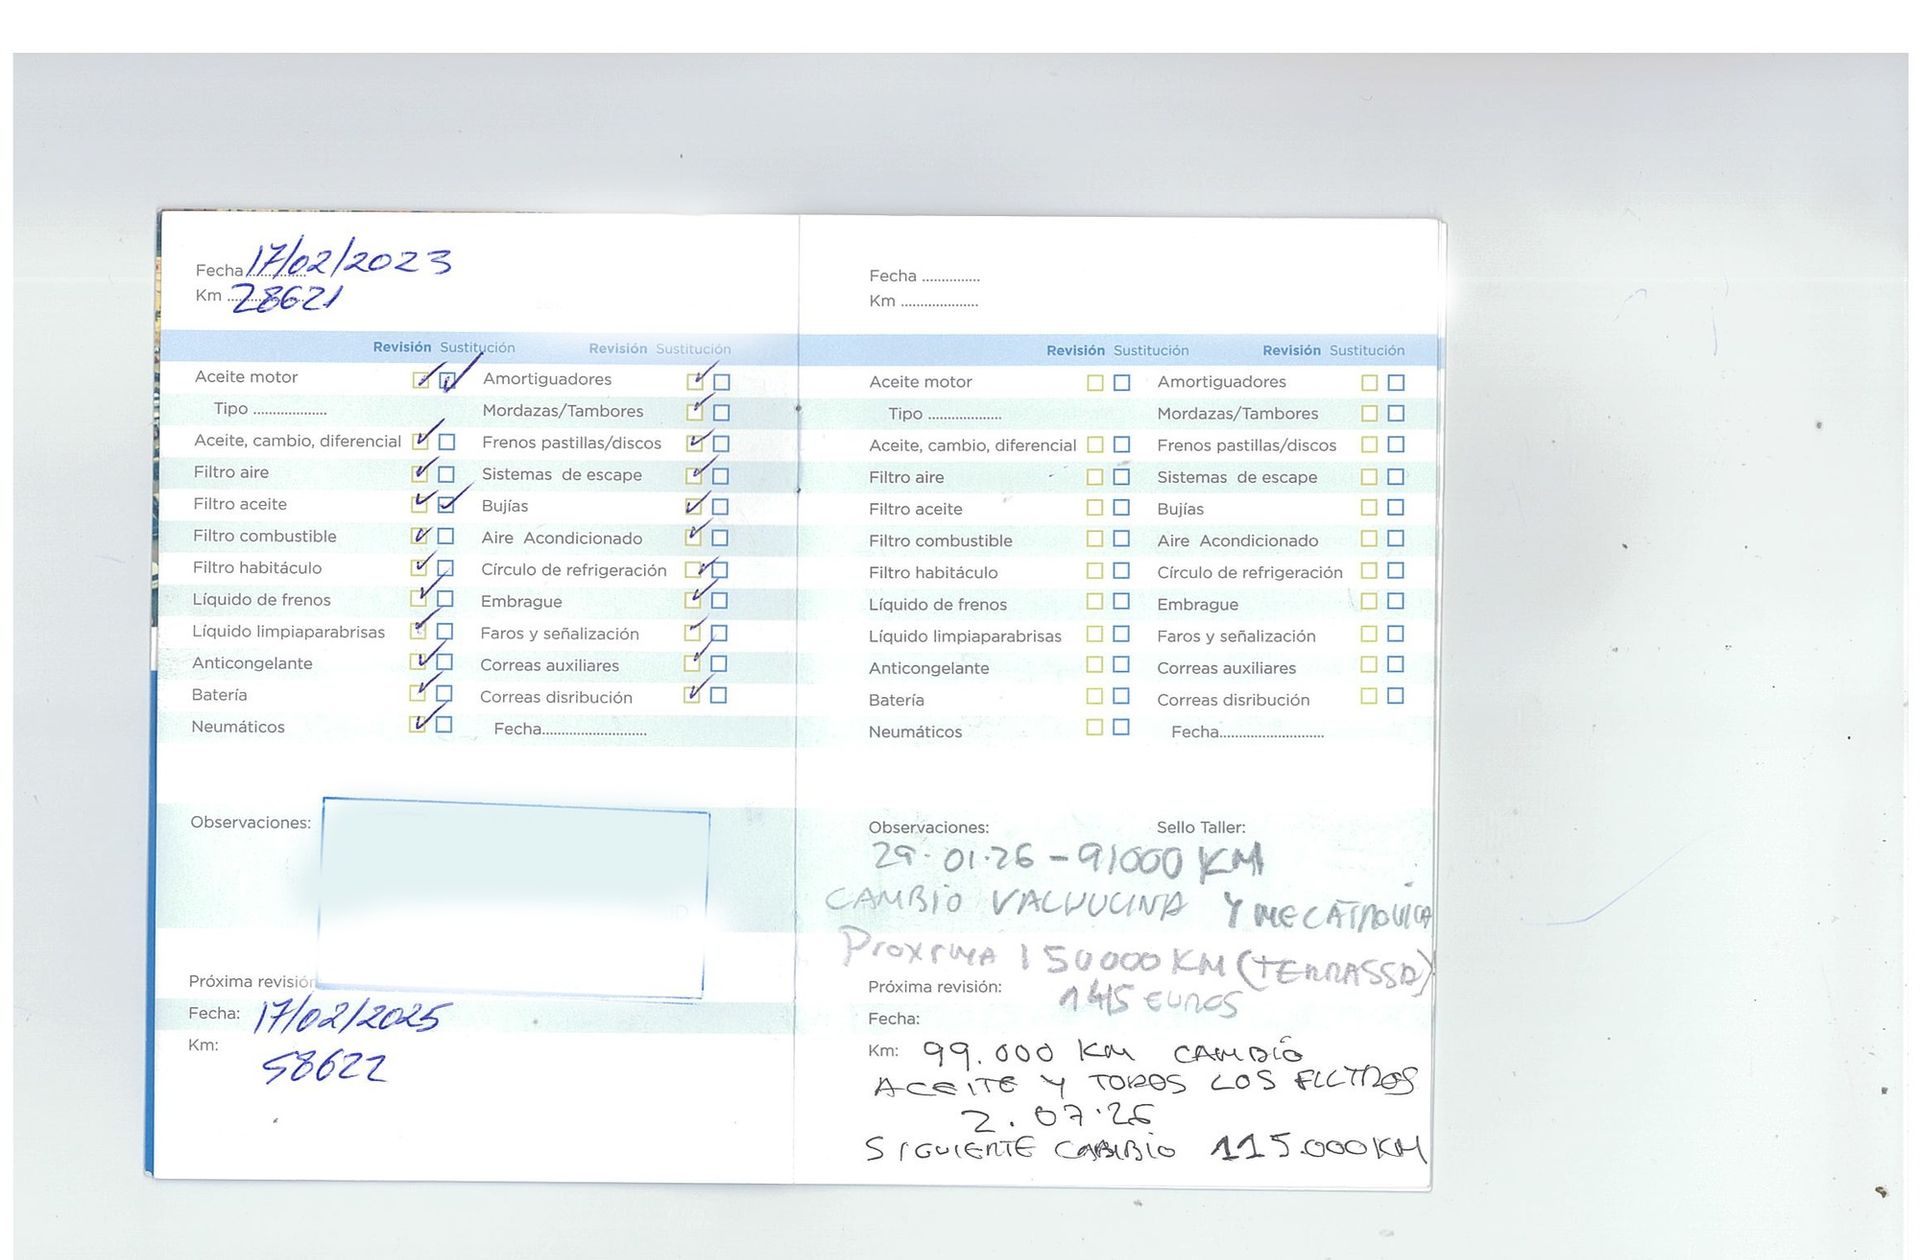 Fecha 17/02/2023
Km 28621
Revisión Sustitución Revisión Sustitución
Aceite motor Amortiguadores
Tipo .................. Mordazas/Tambores
Aceite, cambio, diferencial Frenos pastillas/discos
Filtro aire Sistemas de escape
Filtro aceite Bujías
Filtro combustible Aire Acondicionado
Filtro habitáculo Círculo de refrigeración
Líquido de frenos Embrague
Líquido limpiaparabrisas Faros y señalización
Anticongelante Correas auxiliares
Batería Correas disribución
Neumáticos Fecha.........................
Observaciones:
Próxima revisión
Fecha: 17/02/2025
Km: 58622
Fecha ..............
Km ...................
Revisión Sustitución Revisión Sustitución
Aceite motor Amortiguadores
Tipo .................. Mordazas/Tambores
Aceite, cambio, diferencial Frenos pastillas/discos
Filtro aire Sistemas de escape
Filtro aceite Bujías
Filtro combustible Aire Acondicionado
Filtro habitáculo Círculo de refrigeración
Líquido de frenos Embrague
Líquido limpiaparabrisas Faros y señalización
Anticongelante Correas auxiliares
Batería Correas disribución
Neumáticos Fecha.........................
Observaciones: Sello Taller:
29.01.26 - 91000 KM
CAMBIO VALVULINA Y MECATRONICA
PROXIMA 150000 KM (TERRASSA)
Próxima revisión: EUROS
Fecha:
Km: 99.000 KM CAMBIO
ACEITE Y TODOS LOS FILTROS
2.07.26
SIGUIENTE CAMBIO 115.000 KM